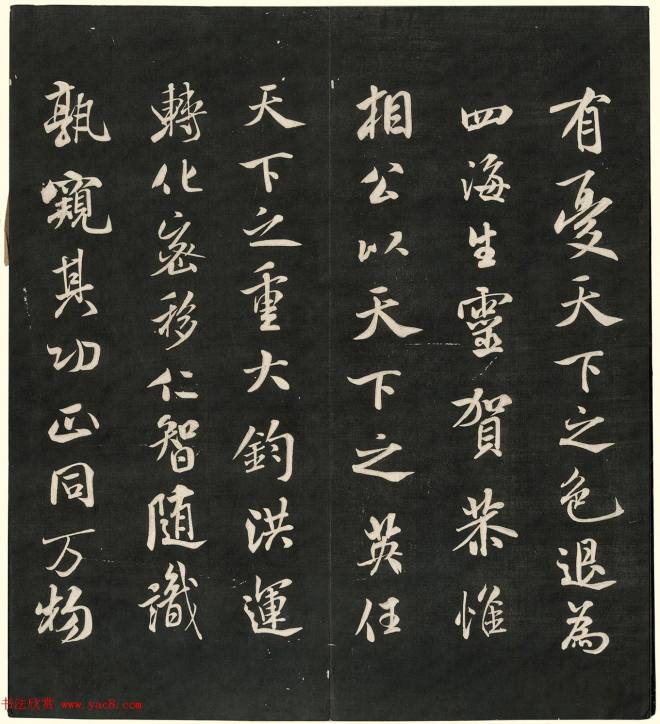 有憂天下之色退為
四海生靈賀恭惟
相公以天下之英任
天下之重大鈞洪運
轉化密移仁智随識
孰窺其功正同万物
书法欣赏 www.yac8.com